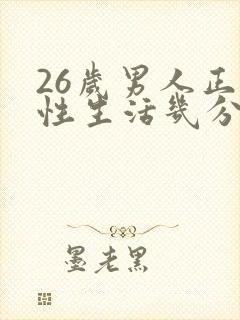 26歲男人正
性生活幾分
墨老黑